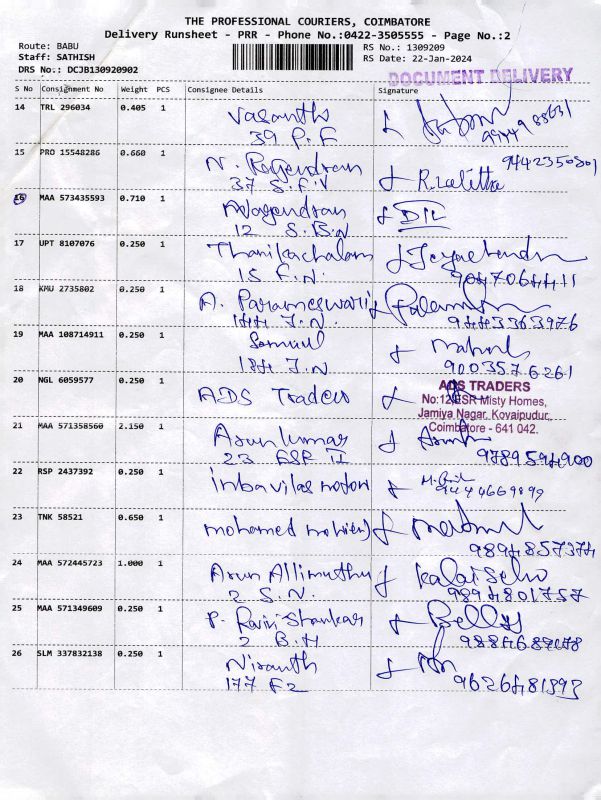 THE PROFESSIONAL COURIERS, COIMBATORE
Delivery Runsheet - PRR - Phone No.:0422-3505555 - Page No.:2
Route: BABU
Staff: SATHISH
DRS No.: DCJB130920902
RS No.: 1309209
RS Date: 22-Jan-2024
DOCUMENT DELIVERY
S No Consignment No Weight PCS Consignee Details Signature
14 TRL 296034 0.405 1 Vasanth
39 P.F
15 PRO 15548286 0.660 1 N. Rajendran 9442350801
37 S.F.N R. Lalitha
16 MAA 573435593 0.710 1 Nagendran
12 S.B.N
17 UPT 8107076 0.250 1 Thanikachalam Jeyachandra
15 F.N. 9047064411
18 KMU 2735802 0.250 1 A. Parameswari
144 J.N 9443363976
19 MAA 108714911 0.250 1 Samuel
184 J.N 9003576261
20 NGL 6059577 0.250 1 ADS Traders
ADS TRADERS
No:12 ESR Misty Homes,
Jamiya Nagar, Kovaipudur,
Coimbatore - 641 042.
21 MAA 571358560 2.150 1 Arun kumar
23 ESR II 9789594900
22 RSP 2437392 0.250 1 inbavilas motors
9444669899
23 TNK 58521 0.650 1 mohamed
9894857374
24 MAA 572445723 1.000 1 Arun Allimuthu Kalai Selvi
2 S.N. 9894801757
25 MAA 571349609 0.250 1 P. Ravi Shankar
2 B.H
26 SLM 337832138 0.250 1 Nisanth
177 F2 9626481393